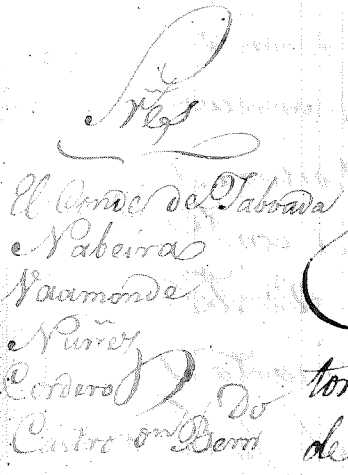 Sr̃es
El Conde de Taboada
Nabeira
Vaamonde
Nuñes
Cordero
Do
Castro
tor
de